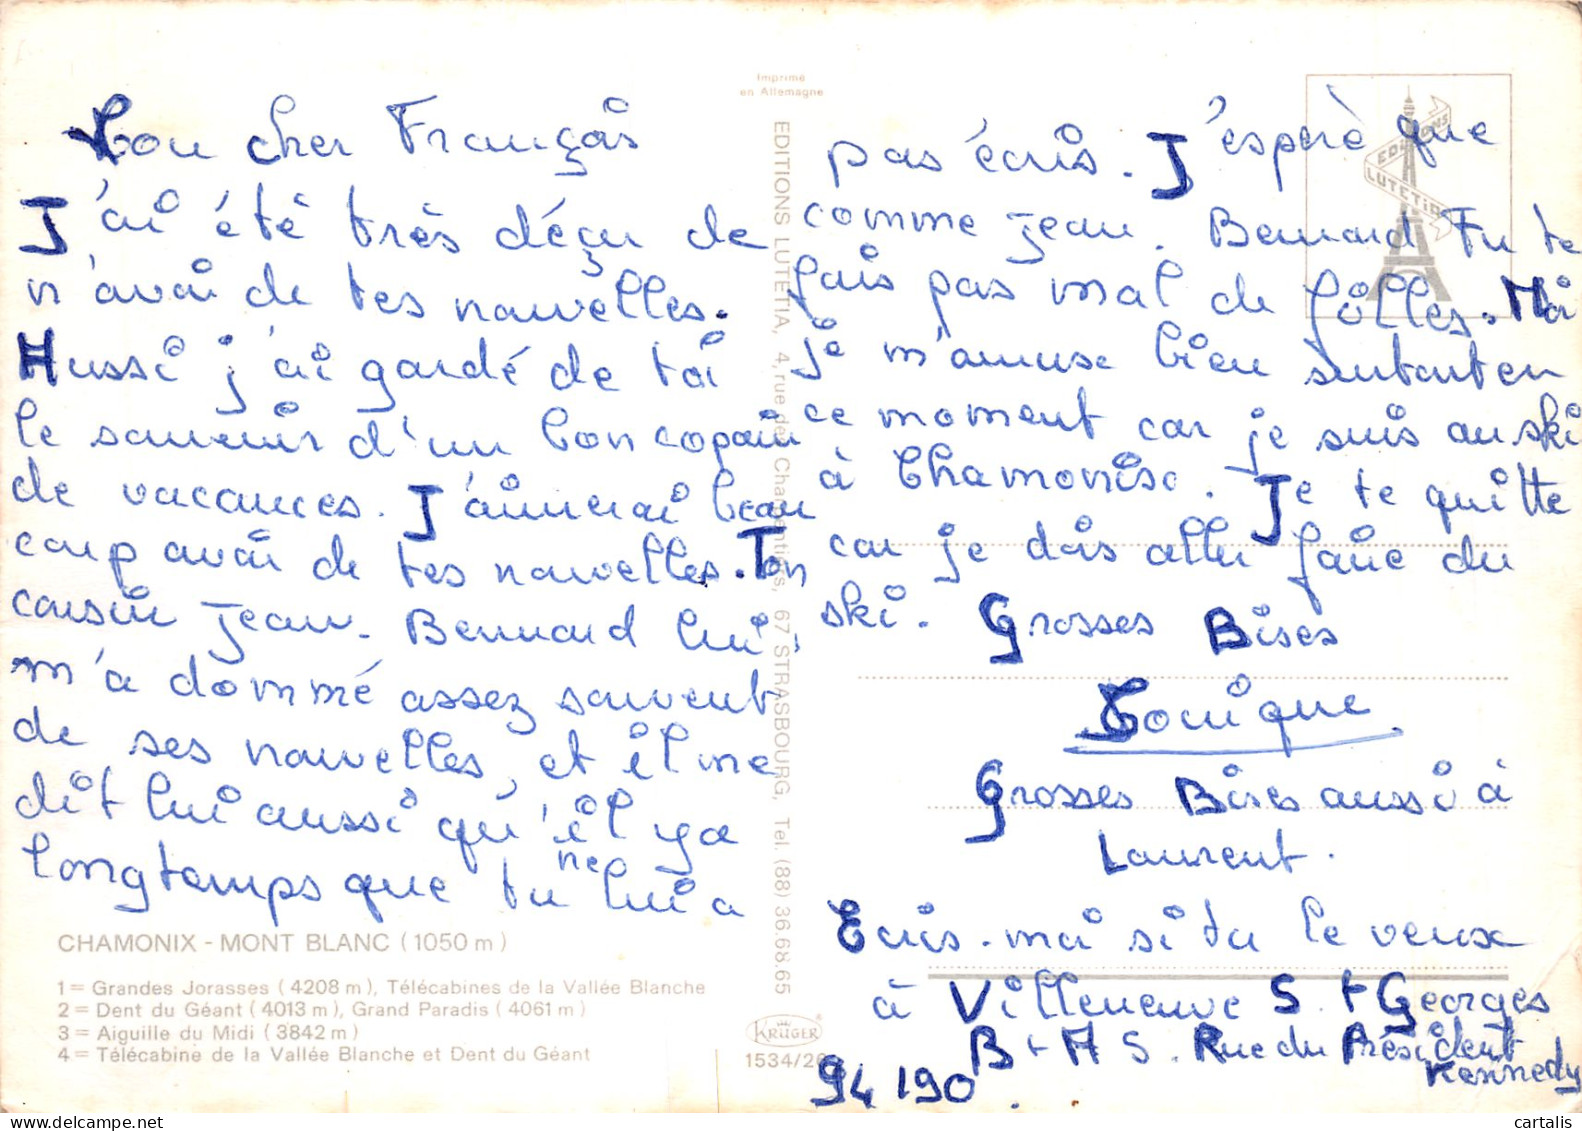 Mon cher François
J'ai été très déçu de
n'avoir de tes nouvelles.
Aussi j'ai gardé de toi
le souvenir d'un bon copain
de vacances. J'aimerai beau
coup avoir de tes nouvelles. Ton
cousin Jean-Bernard lui
m'a dommé assez souvent
de ses nouvelles, et il me
dit lui aussi qu'il y a
longtemps que tu ne lui a
CHAMONIX - MONT BLANC (1050 m)
1 = Grandes Jorasses (4208 m), Télécabines de la Vallée Blanche
2 = Dent du Géant (4013 m), Grand Paradis (4061 m)
3 = Aiguille du Midi (3842 m)
4 = Télécabine de la Vallée Blanche et Dent du Géant
Imprimé
en Allemagne
EDITIONS LUTETIA, 4, rue des Charpentiers, 67 STRASBOURG, Tel. (88) 36.68.65
KRÜGER
1534/26
EDITIONS
LUTETIA
pas écris. J'espère que
comme Jean-Bernard Tu te
fais pas mal de folles. Moi
je m'amuse bien surtout en
ce moment car je suis au ski
à Chamonix. Je te quitte
car je dois aller faire du
ski. Grosses Bises
Monique
Grosses Bises aussi à
Laurent.
Ecris-moi si tu le veux
à Villeneuve St Georges
Bt A 5. Rue du Président
Kennedy
94 190.
cartalis